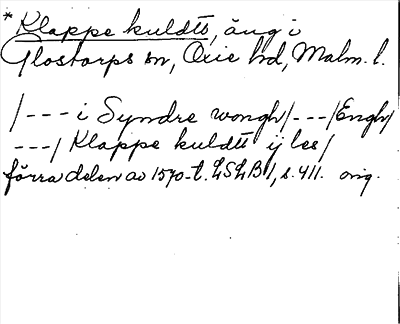 * Klappe kuldts, äng i
Glostorps sn, Oxie hd, Malm. l.
/--- i Syndre wongh/---/Engh/
---/ Klappe kuldtt ij les/
förra delen av 1570-t. LSLB 1, s. 411. orig.